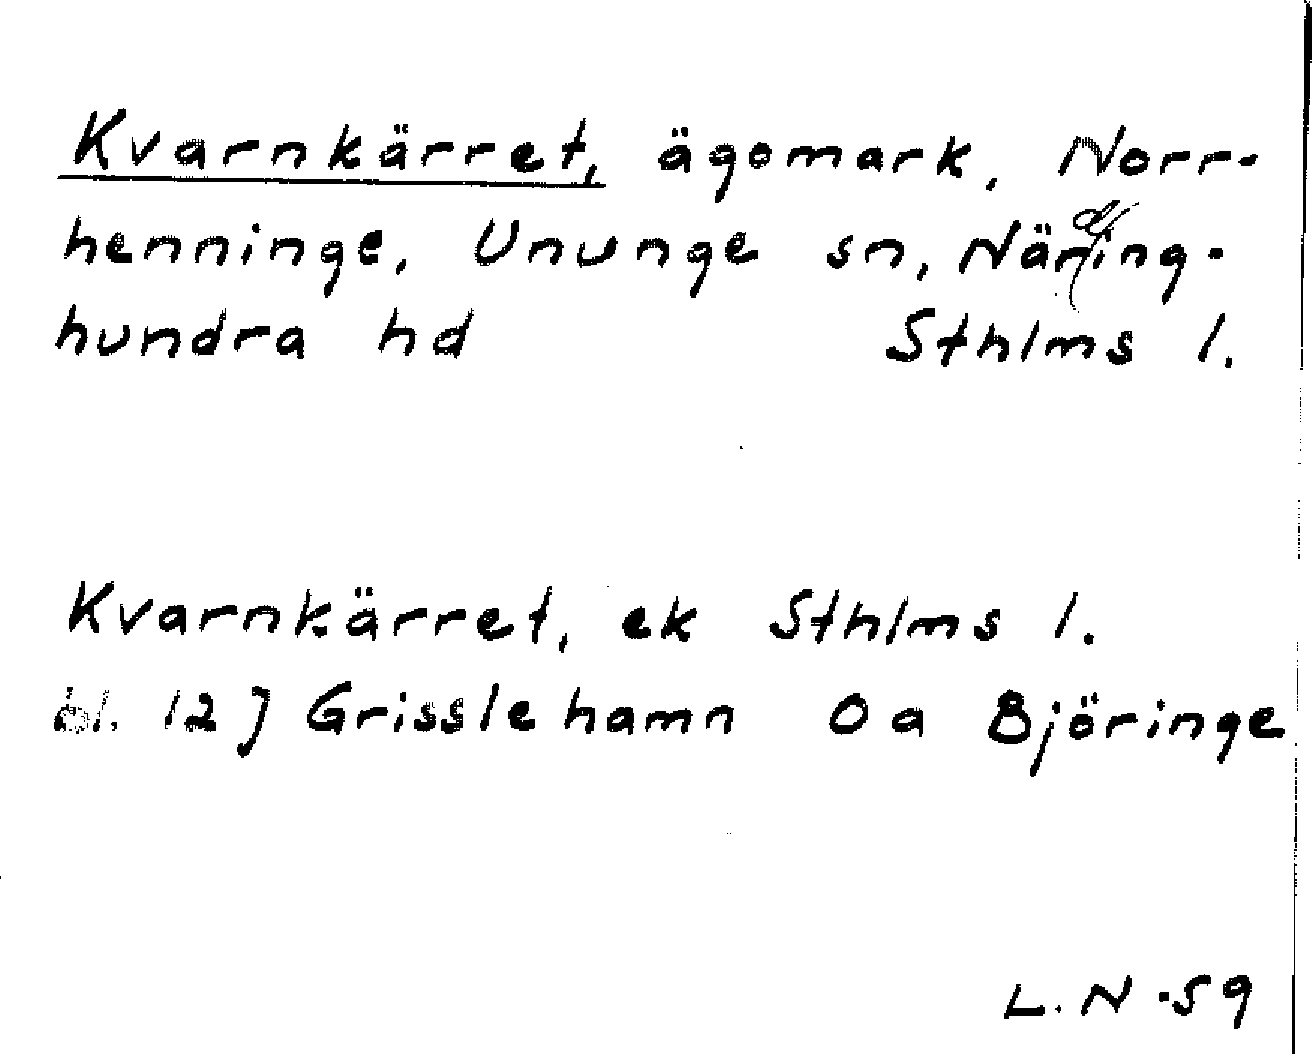 Kvarnkärret, ägomark, Norr-
henninge, Ununge sn, Närding-
hundra hd Sthlms l.
Kvarnkärret, ek Sthlms l.
bl. 12 J Grisslehamn 0 a Björinge
L. N -59